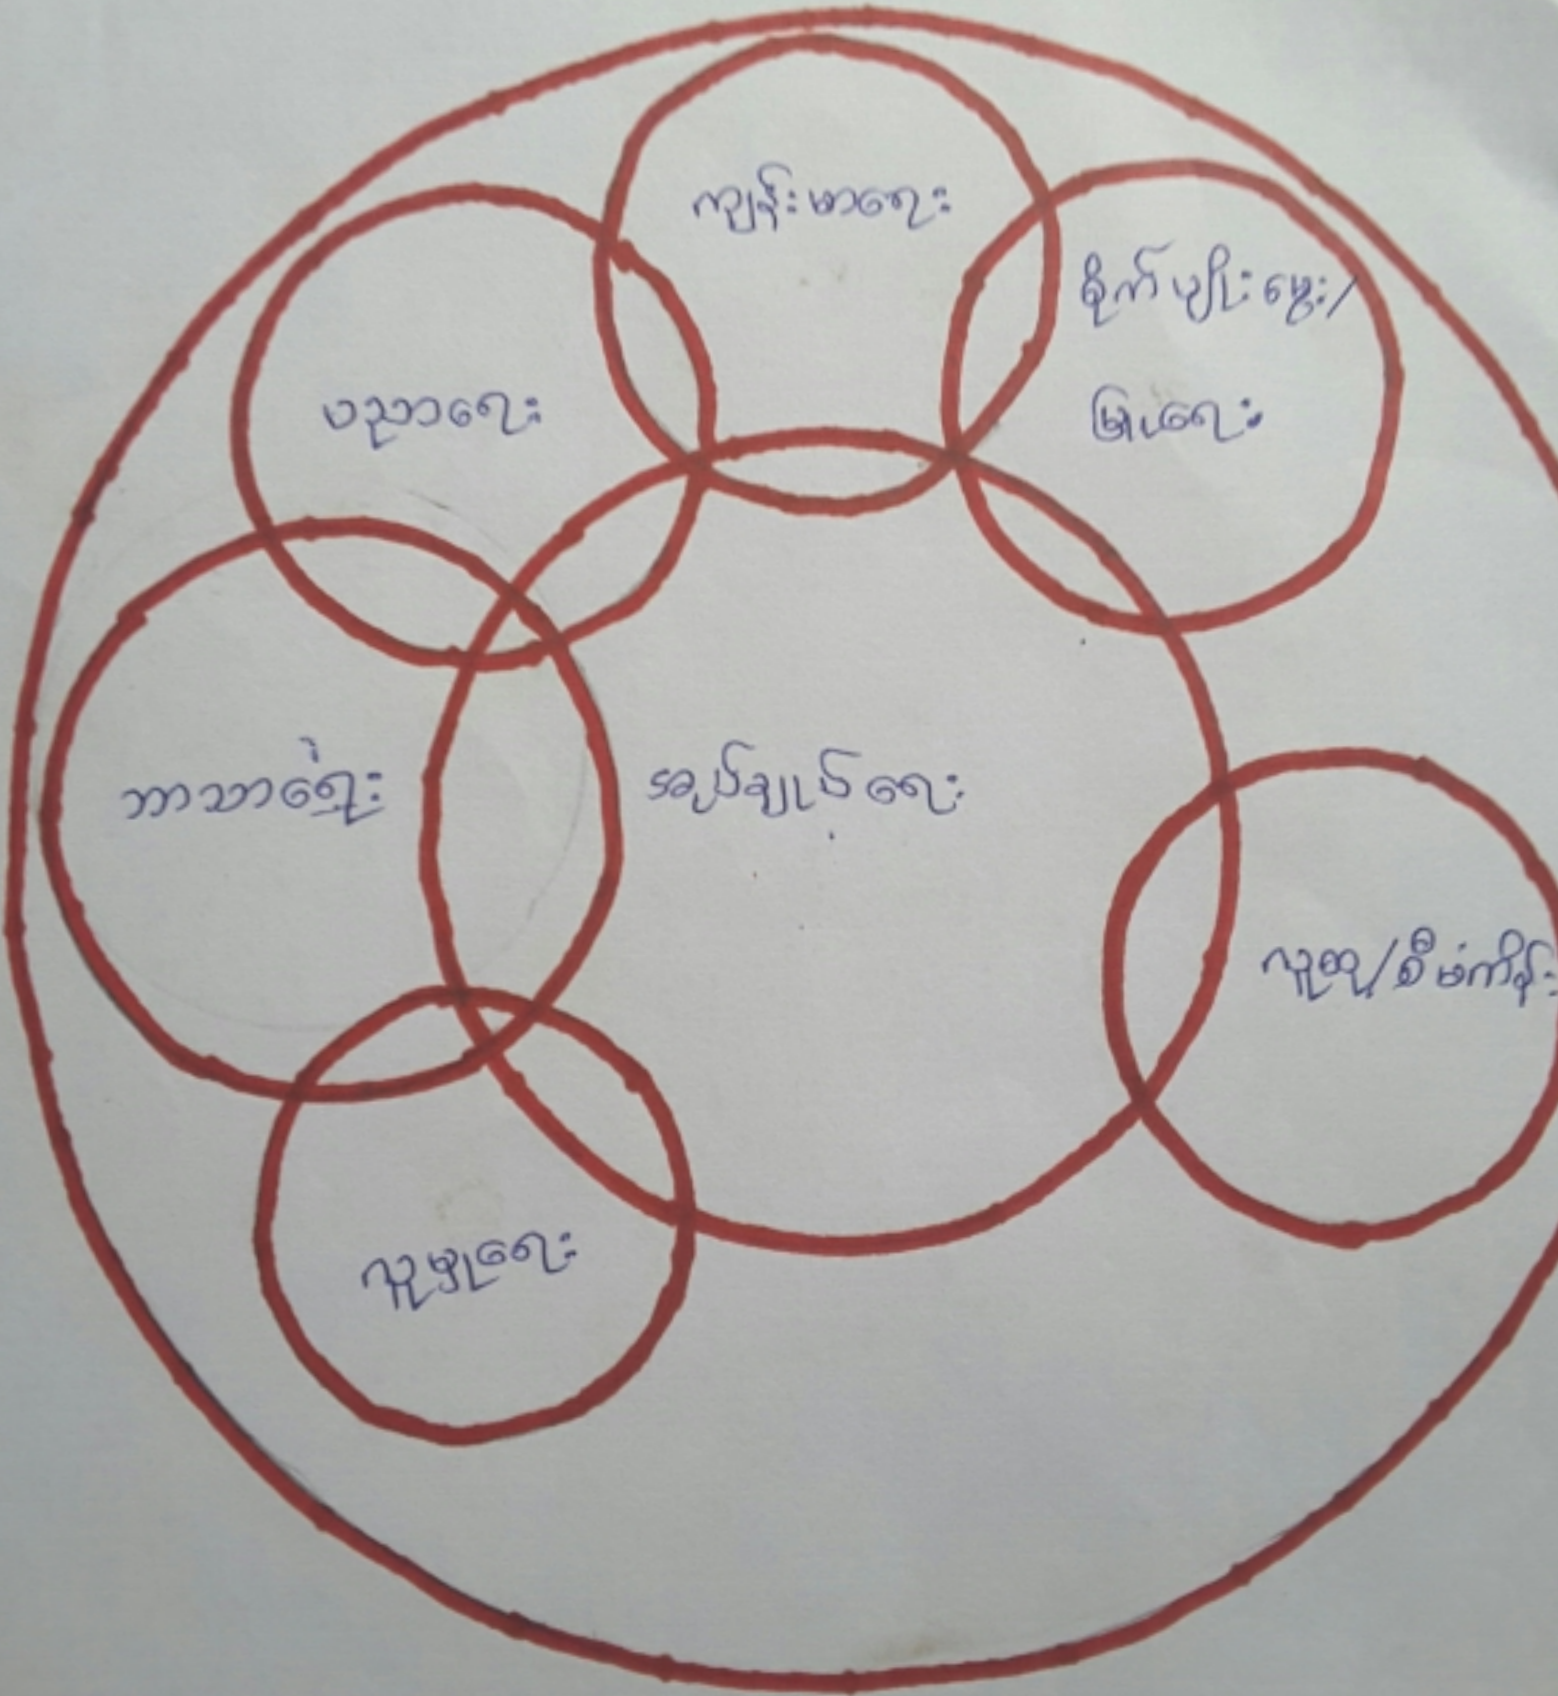 ကျန်းမာရေး
စိုက်ပျိုးမွေး/
မြူရေး
ပညာရေး
ဘာသာရေး
အုပ်ချုပ်ရေး
လူထု/စီမံကိန်း
လူမှုရေး